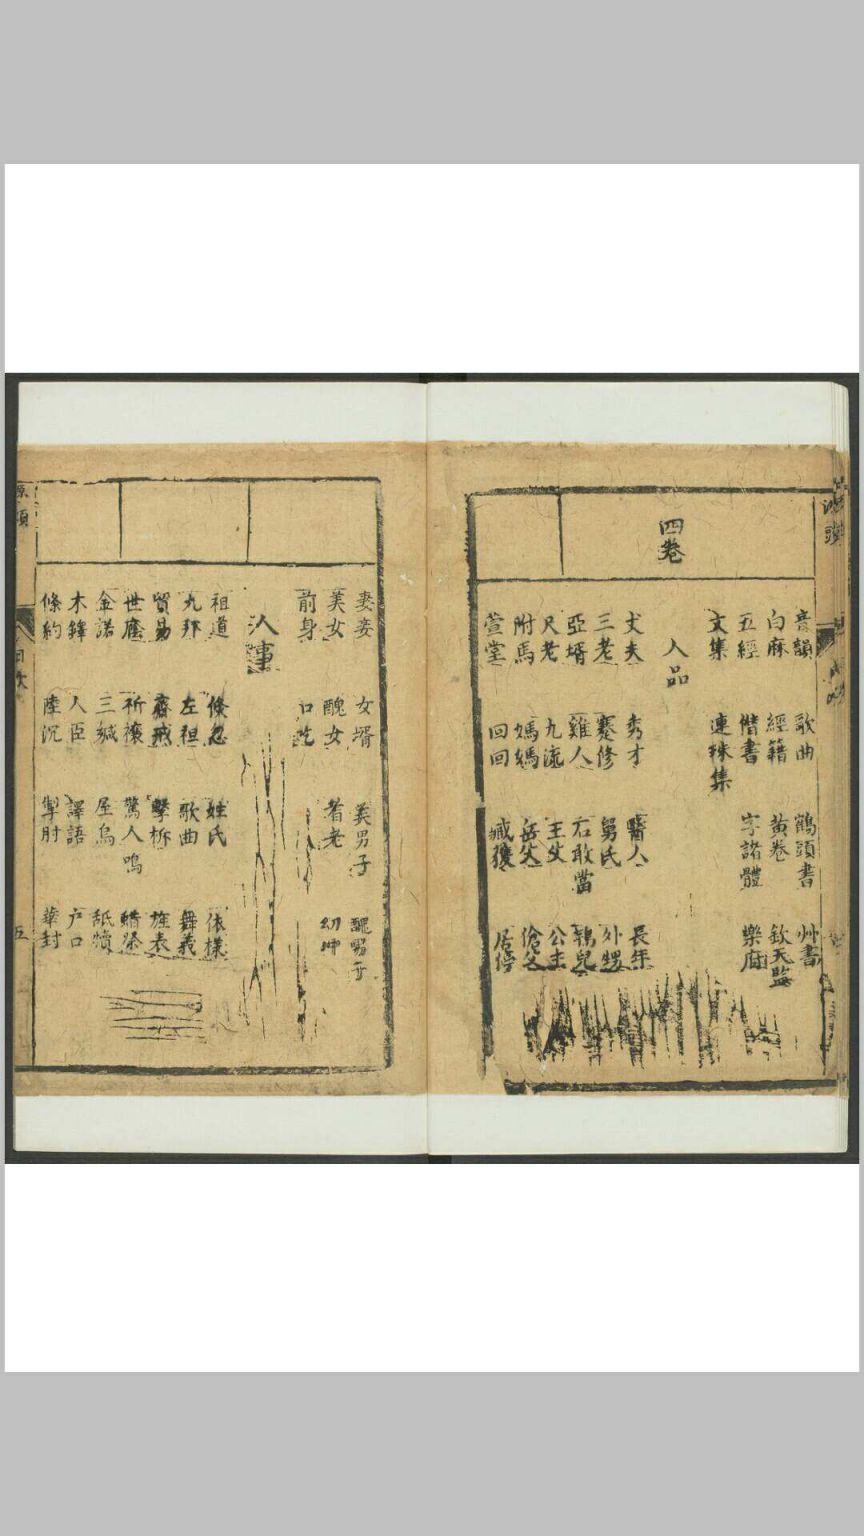 音韻 歌曲 鶴頭書 艸書
白麻 經籍 黄卷 欽天監
五經 偕書 字諸體 樂府
文集 連珠集
四卷
人品
丈夫 秀才 醫人 長年
三老 蹇修 舅氏 外甥
亞壻 雞人 石敢當 鞠兒
尺老 九流 王父 公主
附馬 媽媽 岳父 傖父
萱堂 回回 臧獲 居停
妻妾 女壻 美男子 醜男子
美女 醜女 耆老 幼冲
前身 口吃
人事
祖道 倏忽 姓氏 依樣
九邦 左袒 歌曲 舞義
貿易 齋戒 擊柝 旌表
世䕃 祈禳 驚人鳴 蜡祭
金諾 三緘 屋烏 舐犢
木鐸 人臣 譯語 戸口
條約 陸沉 掣肘 華封
目次
五